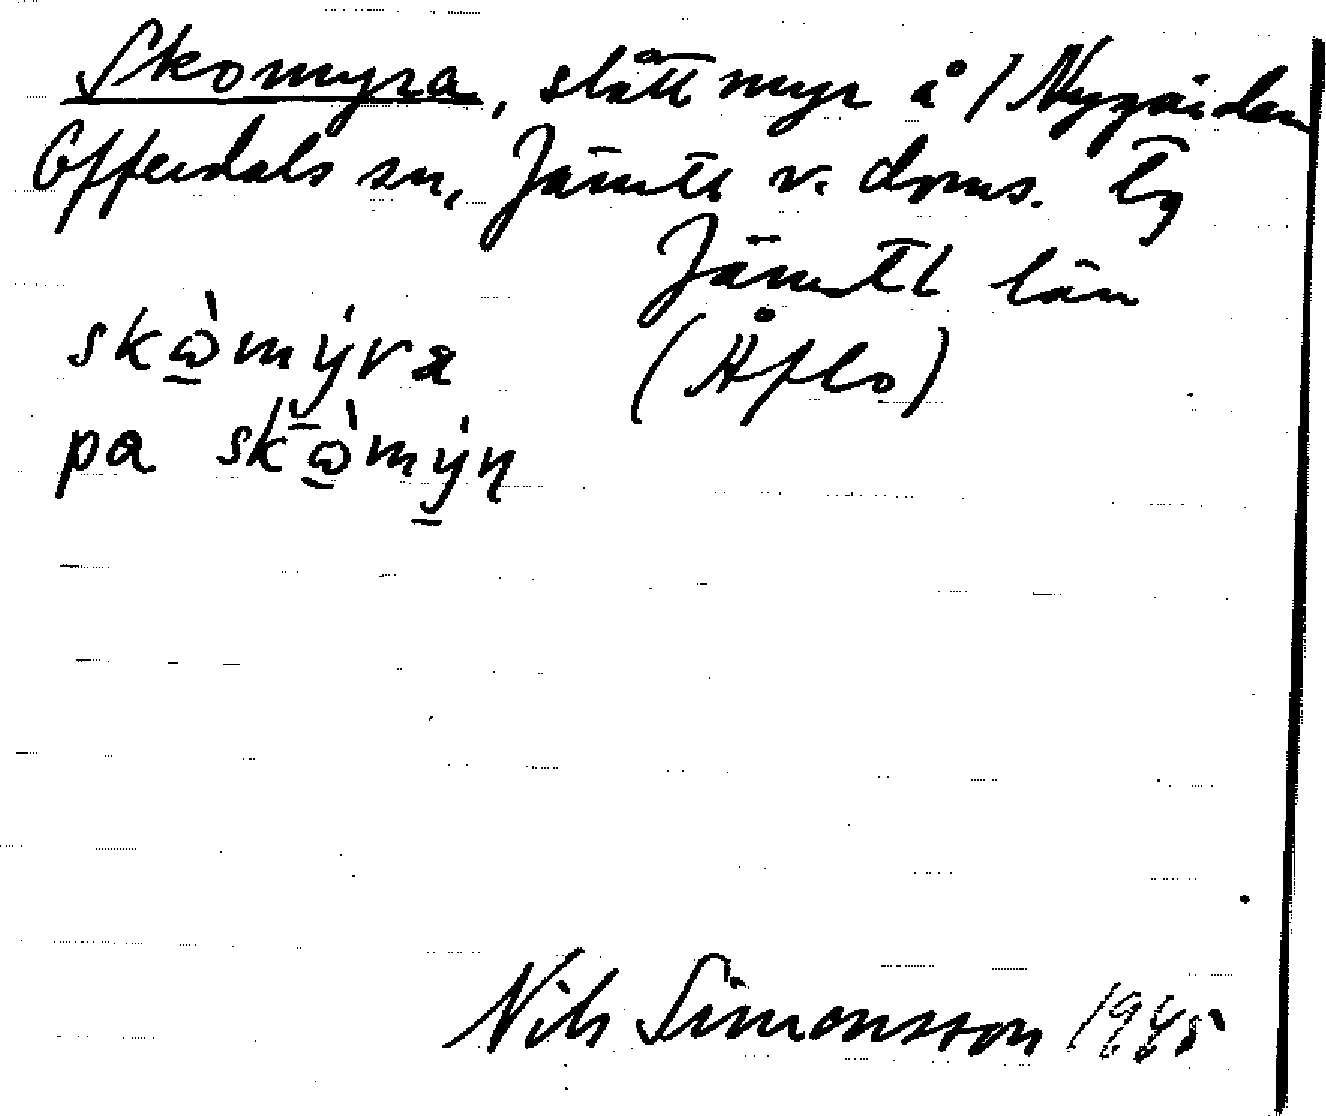 Skomyra, slåttmyr å / Nygården
Offerdals sn, Jämtl v. doms. tg
Jämtl län
skὼ̠mý̠ra (Åflo)
pa skὼ̠mý̠n
Nils Simonsson 1945